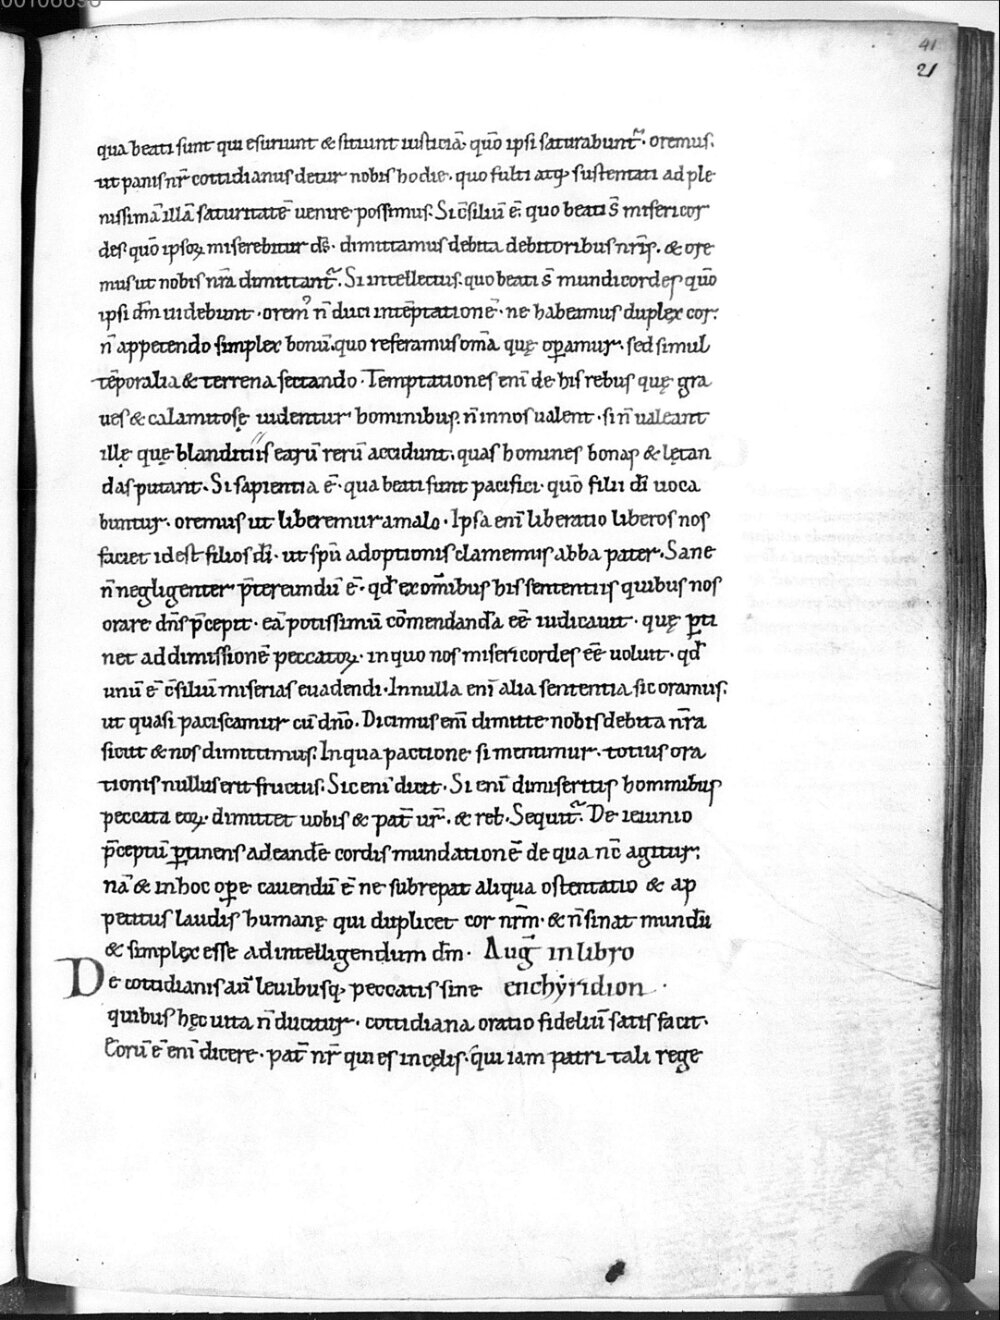 41
21
qua beati sunt qui esuriunt & sitiunt iusticiā· quō ipsi saturabunt̄· oremus·
ut panis nr̄ cottidianus detur nobis hodie· quo fulti atq; sustentati ad ple
nissimā illā saturitatē uenire possimus· Si c̄siliū ē· quo beati s̄ misericor
des· quō ipsoꝝ miserebitur ds̄· dimittamus debita debitoribus nr̄is· & ore
mus ut nobis nr̄a dimittant̄· Si intellectus· quo beati s̄ mundicordes quō
ipsi dm̄ uidebunt· orem᾽ n̄ duci in tēptationē· ne habeamus duplex cor·
n̄ appetendo simplex bonū· quo referamus om̄a quę oꝑamur· sed simul
tēporalia & terrena sectando· Temptationes eni̅ de his rebus quę gra
ues & calamitosę uidentur hominibus· n̄ in nos ualent· si n̄ ualeant
illę quę blanditiis earū rerū accidunt· quas homines bonas & lętan
das putant· Si sapientia ē· qua beati sunt pacifici· quō filii dī uoca
buntur· oremus ut liberemur a malo· Ipsa eni̅ liberatio liberos nos
faciet id est filios dī· ut spū adoptionis clamemus abba pater· Sane
n̄ negligenter p̄tereundū ē· qđ ex om̄ibus his sententiis quibus nos
orare dn̄s p̄cepit· eā potissimū cōmendandā eē iudicauit· quę ꝑti
net ad dimissionē peccatoꝝ· in quo nos misericordes eē uoluit· qđ
unū ē c̄siliū miserias euadendi· In nulla eni̅ alia sententia sic oramus·
ut quasi paciscamur cū dn̄o· Dicimus eni̅ dimitte nobis debita nr̄a
sicut & nos dimittimus· In qua pactione si mentimur· totius ora
tionis nullus erit fructus· Sic eni̅ dicit· Si eni̅ dimiseritis hominibus
peccata eoꝝ· dimittet uobis & pat̄ ur̄· & rel· Sequit̄· De ieiunio
p̄ceptū ꝑtinens ad eandē cordis mundationē de qua nc̄ agitur·
nā & in hoc oꝑe cauendū ē ne subrepat aliqua ostentatio & ap
petitus laudis humanę qui duplicet cor nr̄m· & n̄ sinat mundū
& simplex esse ad intelligendum dm̄· Aug̅ in libro
De cottidianis au̅ leuibusq; peccatis sine enchyridion·
quibus hęc uita n̄ ducitur· cottidiana oratio fideliū satis facit·
Eorū ē eni̅ dicere· pat̄ nr̄ qui es in cęlis· qui iam patri tali rege